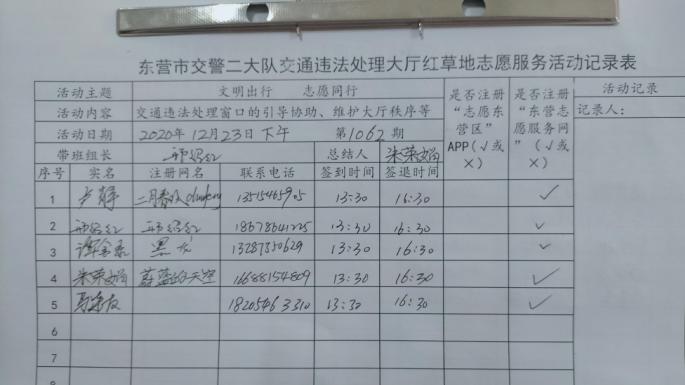 东营市交警二大队交通违法处理大厅红草地志愿服务活动记录表
活动主题 文明出行 志愿同行 是否注册“志愿东营区”APP(√或×) 是否注册“东营志愿服务网”(√或×) 活动记录
活动内容 交通违法处理窗口的引导协助、维护大厅秩序等 记录人:
活动日期 2020年12月23日下午 第1062期
带班组长 总结人 朱荣娟
序号 实名 注册网名 联系电话 签到时间 签退时间
1 卢静 13:30 16:30
2 18678641225 13:30 16:30 √
3 黑龙 13287350629 13:30 16:30 √
4 朱荣娟 蔚蓝的天空 16688154809 13:30 16:30 √
5 18205463310 13:30 16:30 √
6
7
8